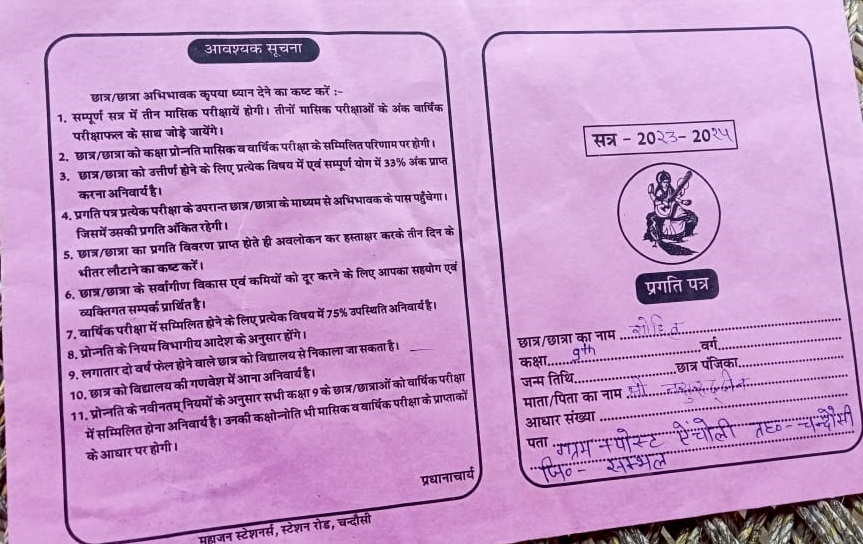 आवश्यक सूचना
छात्र/छात्रा अभिभावक कृपया ध्यान देने का कष्ट करें :-
1. सम्पूर्ण सत्र में तीन मासिक परीक्षायें होगी। तीनों मासिक परीक्षाओं के अंक वार्षिक
परीक्षाफल के साथ जोड़े जायेंगे।
2. छात्र/छात्रा को कक्षा प्रोन्नति मासिक व वार्षिक परीक्षा के सम्मिलित परिणाम पर होगी।
3. छात्र/छात्रा को उत्तीर्ण होने के लिए प्रत्येक विषय में एवं सम्पूर्ण योग में 33% अंक प्राप्त
करना अनिवार्य है।
4. प्रगति पत्र प्रत्येक परीक्षा के उपरान्त छात्र/छात्रा के माध्यम से अभिभावक के पास पहुँचेगा।
जिसमें उसकी प्रगति अंकित रहेगी।
5. छात्र/छात्रा का प्रगति विवरण प्राप्त होते ही अवलोकन कर हस्ताक्षर करके तीन दिन के
भीतर लौटाने का कष्ट करें।
6. छात्र/छात्रा के सर्वागीण विकास एवं कमियों को दूर करने के लिए आपका सहयोग एवं
व्यक्तिगत सम्पर्क प्रार्थित है।
7. वार्षिक परीक्षा में सम्मिलित होने के लिए प्रत्येक विषय में 75% उपस्थिति अनिवार्य है।
8. प्रोन्नति के नियम विभागीय आदेश के अनुसार होंगे।
9. लगातार दो वर्ष फेल होने वाले छात्र को विद्यालय से निकाला जा सकता है।
10. छात्र को विद्यालय की गणवेश में आना अनिवार्य है।
11. प्रोन्नति के नवीनतम् नियमों के अनुसार सभी कक्षा 9 के छात्र/छात्राओं को वार्षिक परीक्षा
में सम्मिलित होना अनिवार्य है। उनकी कक्षोन्नोति भी मासिक व वार्षिक परीक्षा के प्राप्ताकों
के आधार पर होगी।
प्रधानाचार्य
महाजन स्टेशनर्स, स्टेशन रोड, चन्दौसी
सत्र - 20२३- 20२५
प्रगति पत्र
छात्र/छात्रा का नाम
कक्षा 9th वर्ग
जन्म तिथि छात्र पंजिका
माता/पिता का नाम श्री
आधार संख्या
पता ग्राम +पोस्ट ऐंचोली तह०- चन्दौसी
जि०- सम्भल